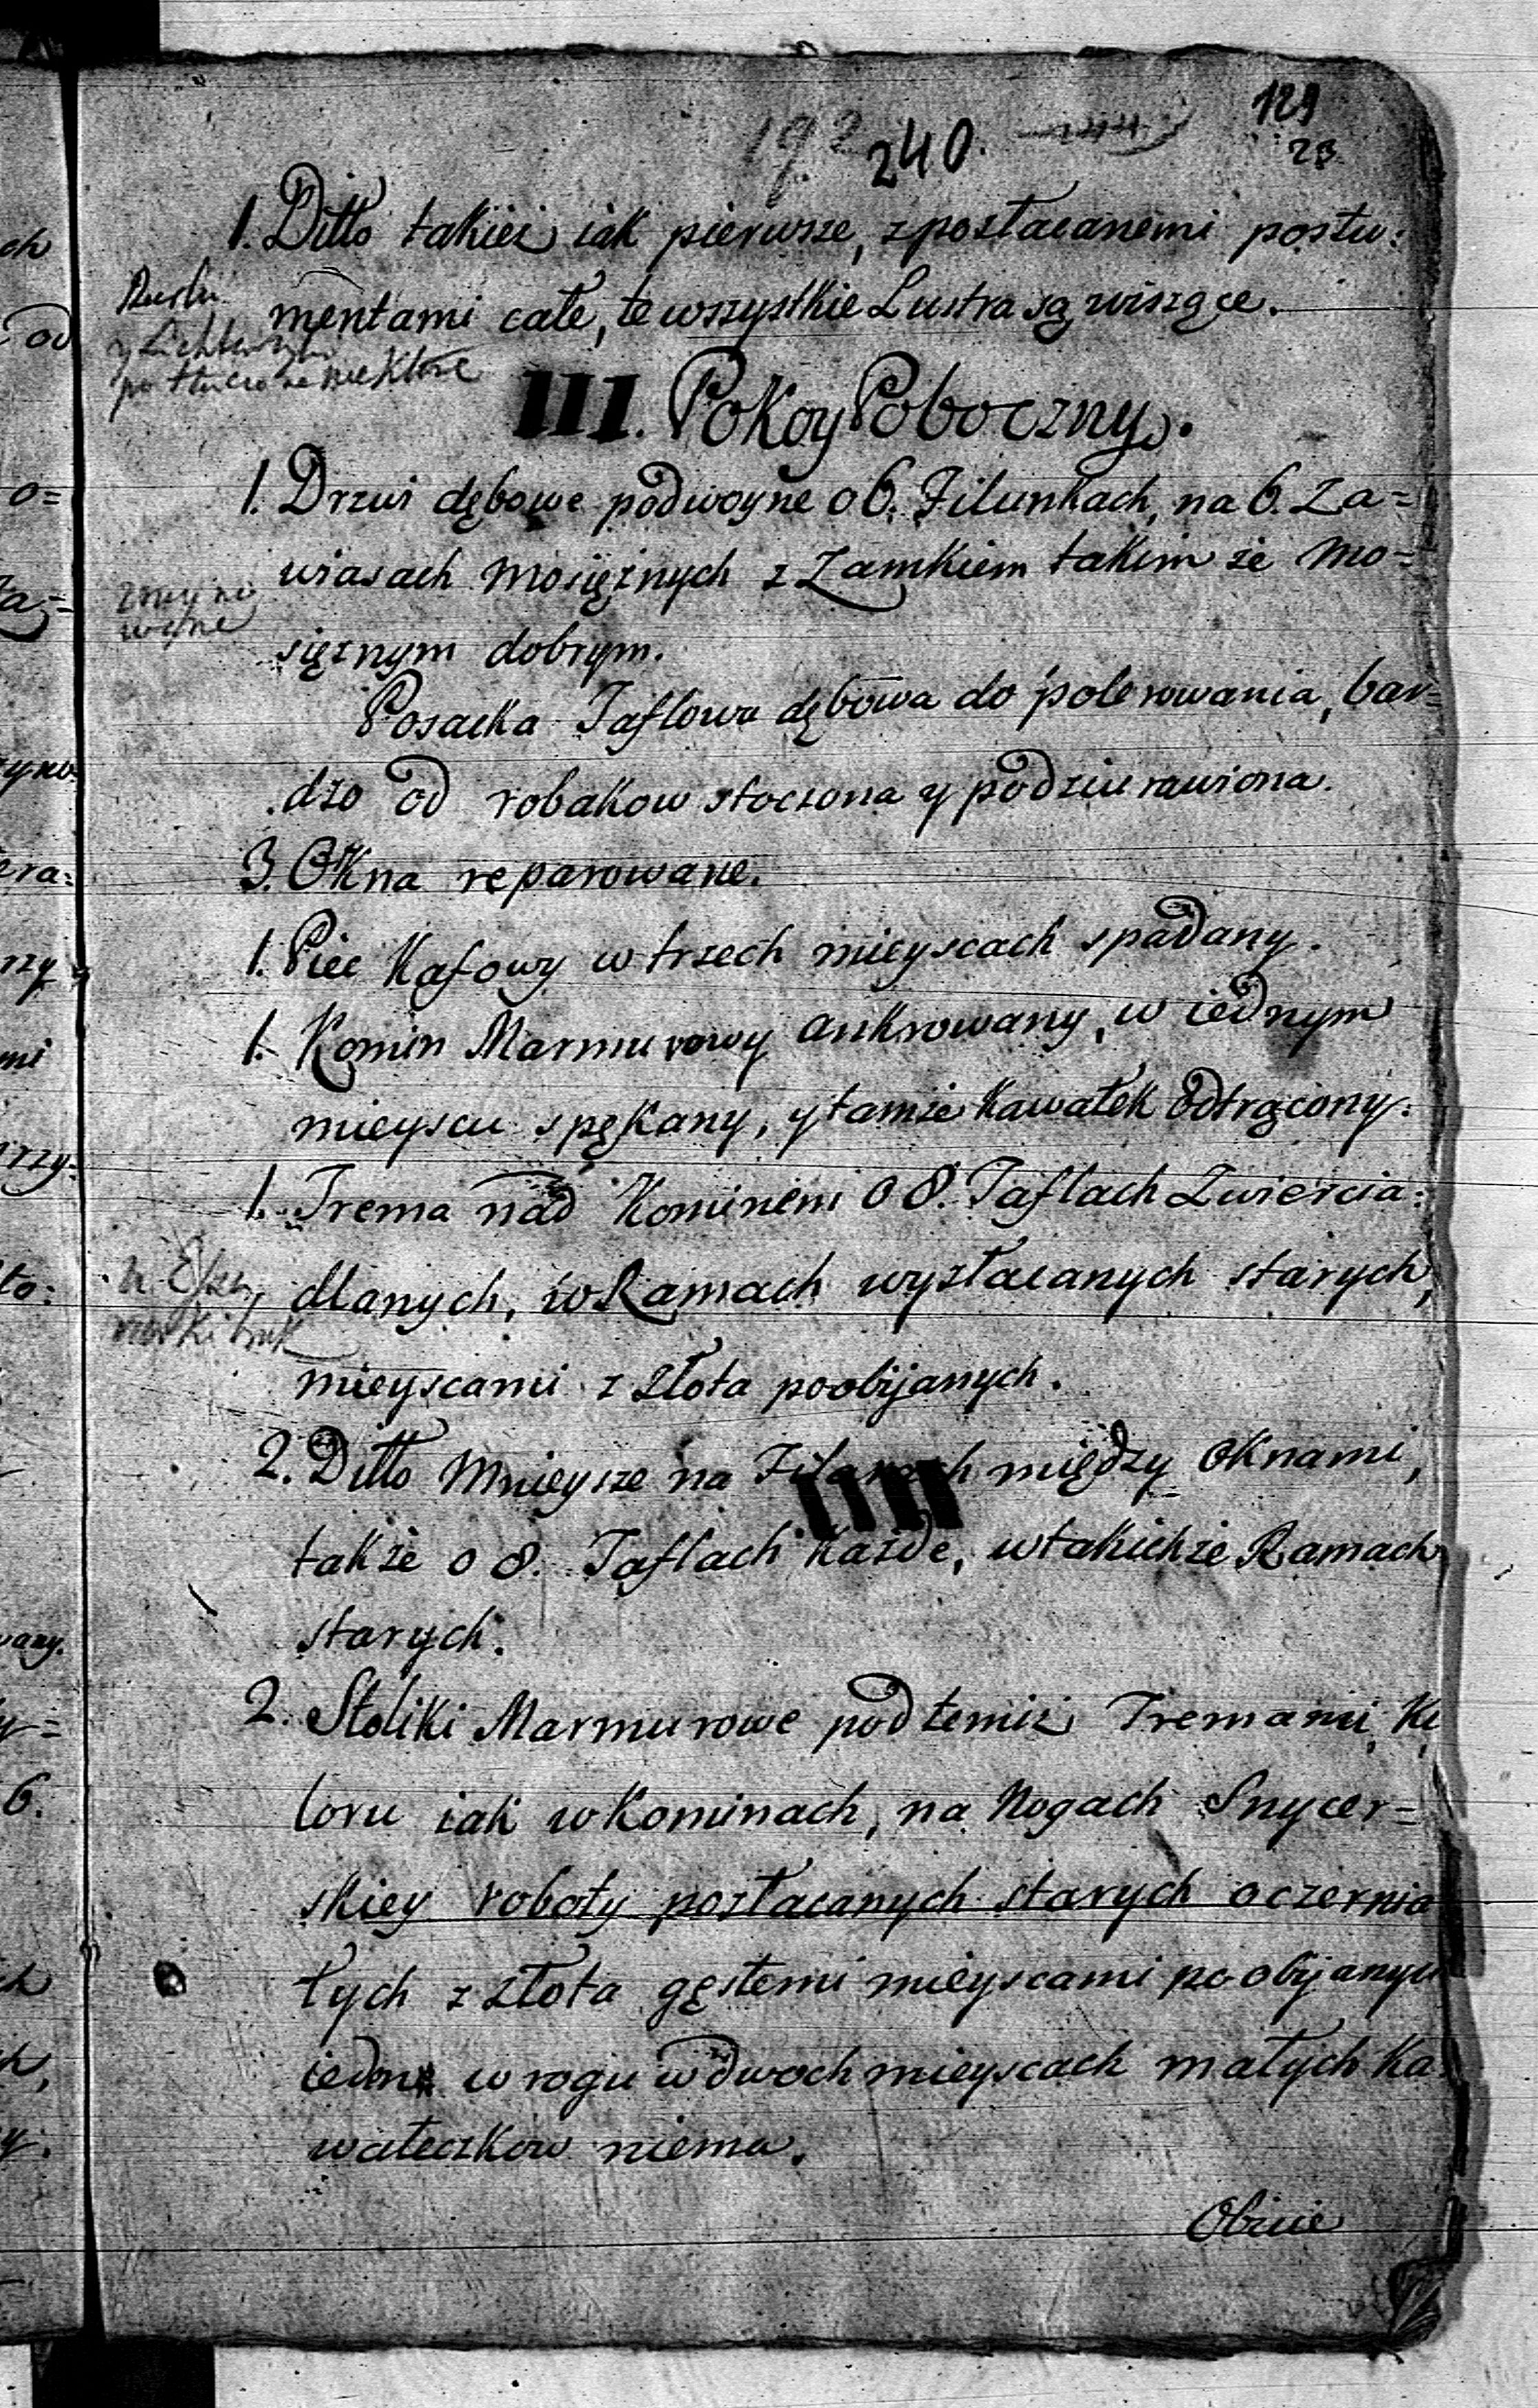 129
240.
23
1. Ditto takież iak pierwsze, z pozłacanemi postu:
mentami całe, te wszystkie Lustra są wiszące.
potłuczone niektóre
III. Pokoy Poboczny.
1. Drzwi dębowe podwoyne o 6. Filunkach, na 6. Za=
wiasach Mosiężnych z Zamkiem takim że Mo=
siężnym dobrym.
Posacka Taflowa dębowa do polerowania, bar=
dzo od robakow stoczona y podziurawiona.
3. Okna reparowane.
1. Piec Kaflowy w trzech mieyscach spadany.
1. Komin Marmurowy ankrowany, w iednym
mieyscu spękany, y tamże kawałek odtrącony.
1. Trema nad Kominem o 8. Taflach Zwiercia:
dlanych, w Ramach wyzłacanych starych,
mieyscami z złota poobijanych.
2. Ditto Mnieysze na Filarach między Oknami,
także o 8. Taflach każde, w takichże Ramach
starych.
2. Stoliki Marmurowe pod temiż Tremami, Ko
loru iak w Kominach, na Nogach Snycer=
skiey roboty pozłacanych starych oczernia
łych z złota gęstemi mieyscami poobijanych
w rogu w dwoch mieyscach małych ka
wałeczkow niema.
Obicie